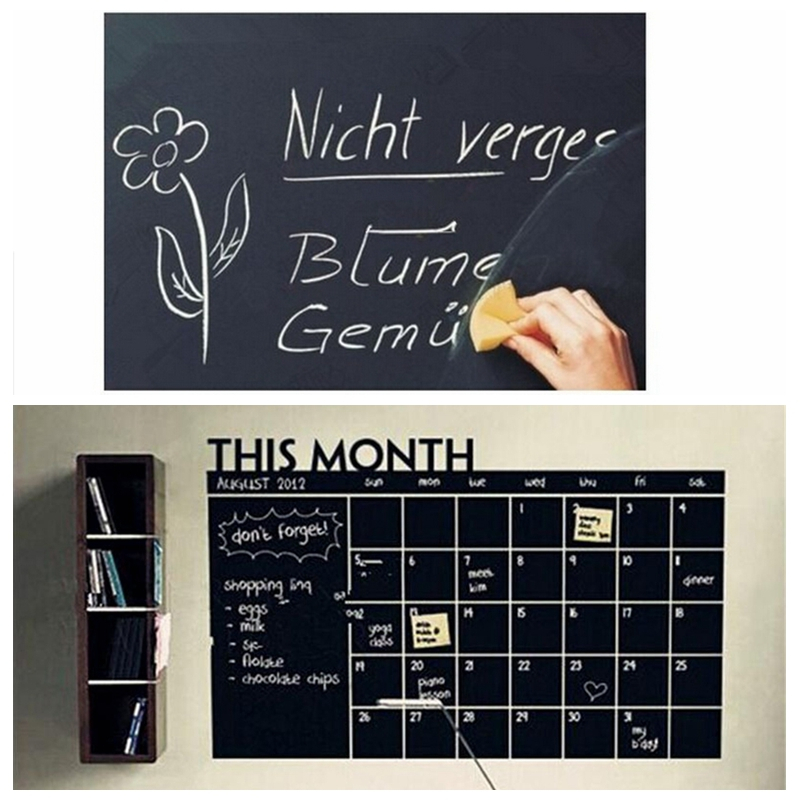 Nicht verges
Blume
Gemü
THIS MONTH
AUGUST 2012 sun mon tue wed thu fri sat
1 2 3 4
don't forget!
5 6 7 8 9 10 11
meet
kim
dinner
shopping
- eggs
- milk
13 14 15 16 17 18
yoga
class
- chocolate chips
19 20 21 22 23 24 25
piano
lesson
26 27 28 29 30 31
my
b'day!